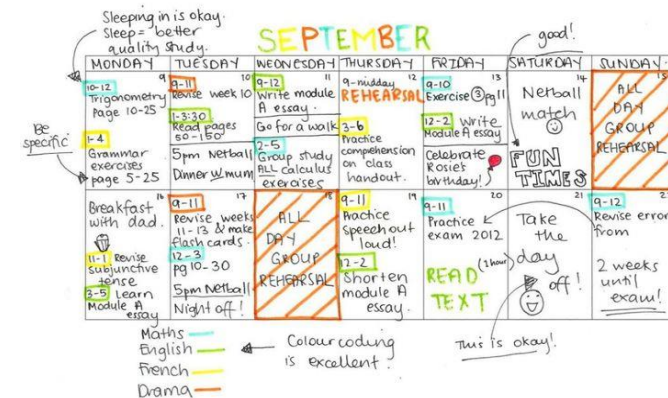 Sleeping in is okay.
Sleep = better
quality study.
SEPTEMBER
good!
MONDAY TUESDAY WEDNESDAY THURSDAY FRIDAY SATURDAY SUNDAY
Be
specific
9
10-12
Trigonometry
page 10-25
1-4
Grammar
exercises
page 5-25
10
9-11
Revise week 10
1-3:30
Read pages
50-150
5pm Netball
Dinner w mum
11
9-12
Write module
A essay.
Go for a walk
2-5
Group study
ALL calculus
exercises
12
9-midday
REHEARSAL
3-6
Practice
comprehension
on class
handout.
13
9-10
Exercise 3 pg 11
12-2 Write
Module A essay
Celebrate
Rosie's
birthday!
14
Netball
match
FUN
TIMES
15
ALL
DAY
GROUP
REHEARSAL
16
Breakfast
with dad.
11-1 Revise
subjunctive
tense
3-5 Learn
Module A
essay
17
9-11
Revise weeks
11-13 & make
flash cards.
12-3
pg 10-30
5pm Netball
Night off!
18
ALL
DAY
GROUP
REHEARSAL
19
9-11
Practice
speech out
loud!
12-2
Shorten
module A
essay.
20
9-11
Practice
exam 2012
READ
TEXT
(1 hour)
21
Take
the
day
off!
9-12
Revise error
from
2 weeks
until
exam!
Maths
English
French
Drama
Colour coding
is excellent.
This is okay!